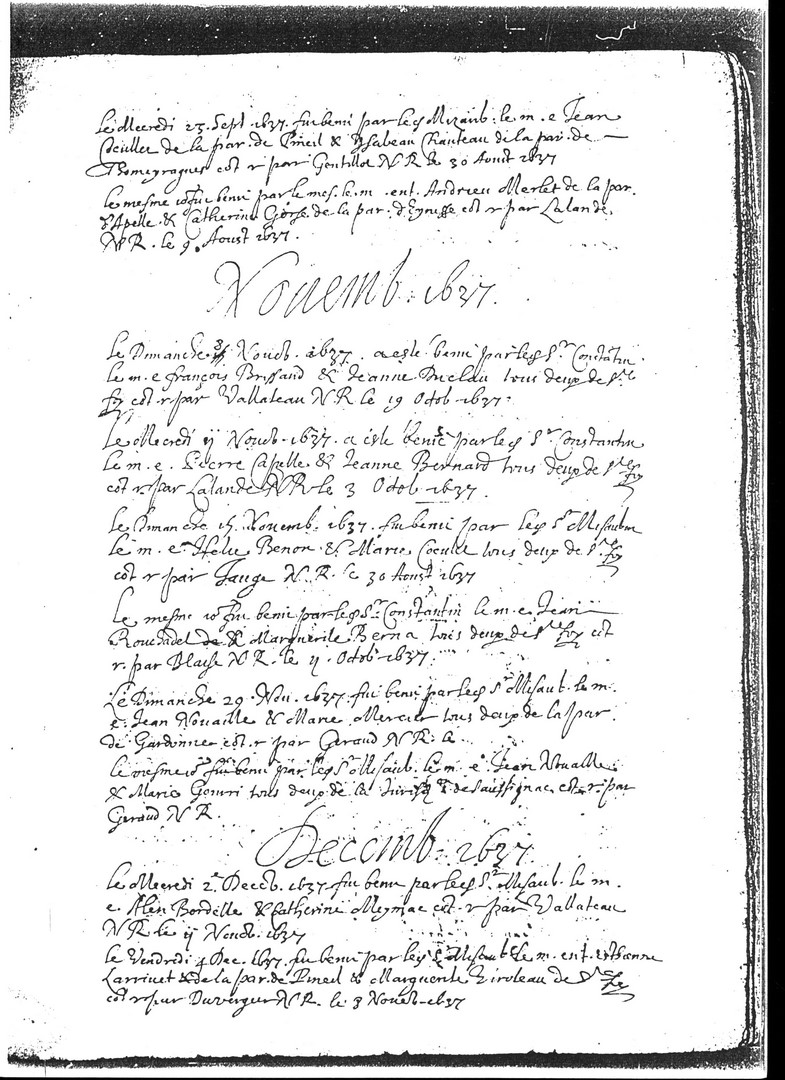 Le Mecredi 23. Sept 1637. fut beni par led Mizaub: le m. e Jean
Coeullet de la par. de Pineil & Ysabeau Chauteau de la par. de
Thomeyragues cot r par Gentillot N R le 30 Aoust 1637
le mesme io fut beni par le mes. le m. ent. Andrieu Merlet de la par.
d'Apelle & Catherine de la par. d'Eynesse cot r par Lalande.
N R. le 9. Aoust 1637.
Nouemb. 1637.
Le Dimanche Nouēb. 1637. a este beni par led Sr. Constātin
le m. e françois Brissaud & Jeanne Duclau tous deux de Ste
foy cot r par Vallateau N R. le 19 Octob 1637.
Le Mecredi ij Nouēb. 1637. a este beni par led Sr Constantin
le m. e. Pierre Capelle & Jeanne Bernard tous deux de Ste foy
cot r par Lalande N R le 3 Octob. 1637.
Le Dimanche 15. Nouemb. 1637. fut beni par led Sr Misaubin
le m. e Helie Benon & Marie Coeulle tous deux de Ste foy
cot r par Jauge N. R. le 30 Aoust 1637
Le mesme io fut beni par led Sr Constantin le m. e Jean
Rouchadel de & Marguerite Berna tous deux de Ste foy cot
r. par Blaise N R. le ij. Octob. 1637.
Le Dimanche 29. Nou. 1637. fut beni par led Sr Misaub. le m.
e. Jean Nouaille & Marie Mercier tous deux de la par.
de Gardonne cot. r par Geraud N R. le
le mesme io fut beni par led Sr Misaub. le m. e Jean Noualle
& Marie tous deux de la Jurisd de Saussignac cot r. par
Geraud N R.
Decemb. 1637
Le Mecredi 2. Decēb. 1637. fut beni par led Sr. Misaub. le m.
e. Alen Bordelle & Catherine Meymac cot. r par Vallateau
N R le ij Nouēb. 1637
le Vendredi 4 Dec. 1637. fut beni par led Sr Misaub le m. ent. Estienne
Larriuet & de la par. de Pineil & Marguerite Tiroleau de Ste foy
cot r par Duvergier N R. le 3 Nouēb. 1637